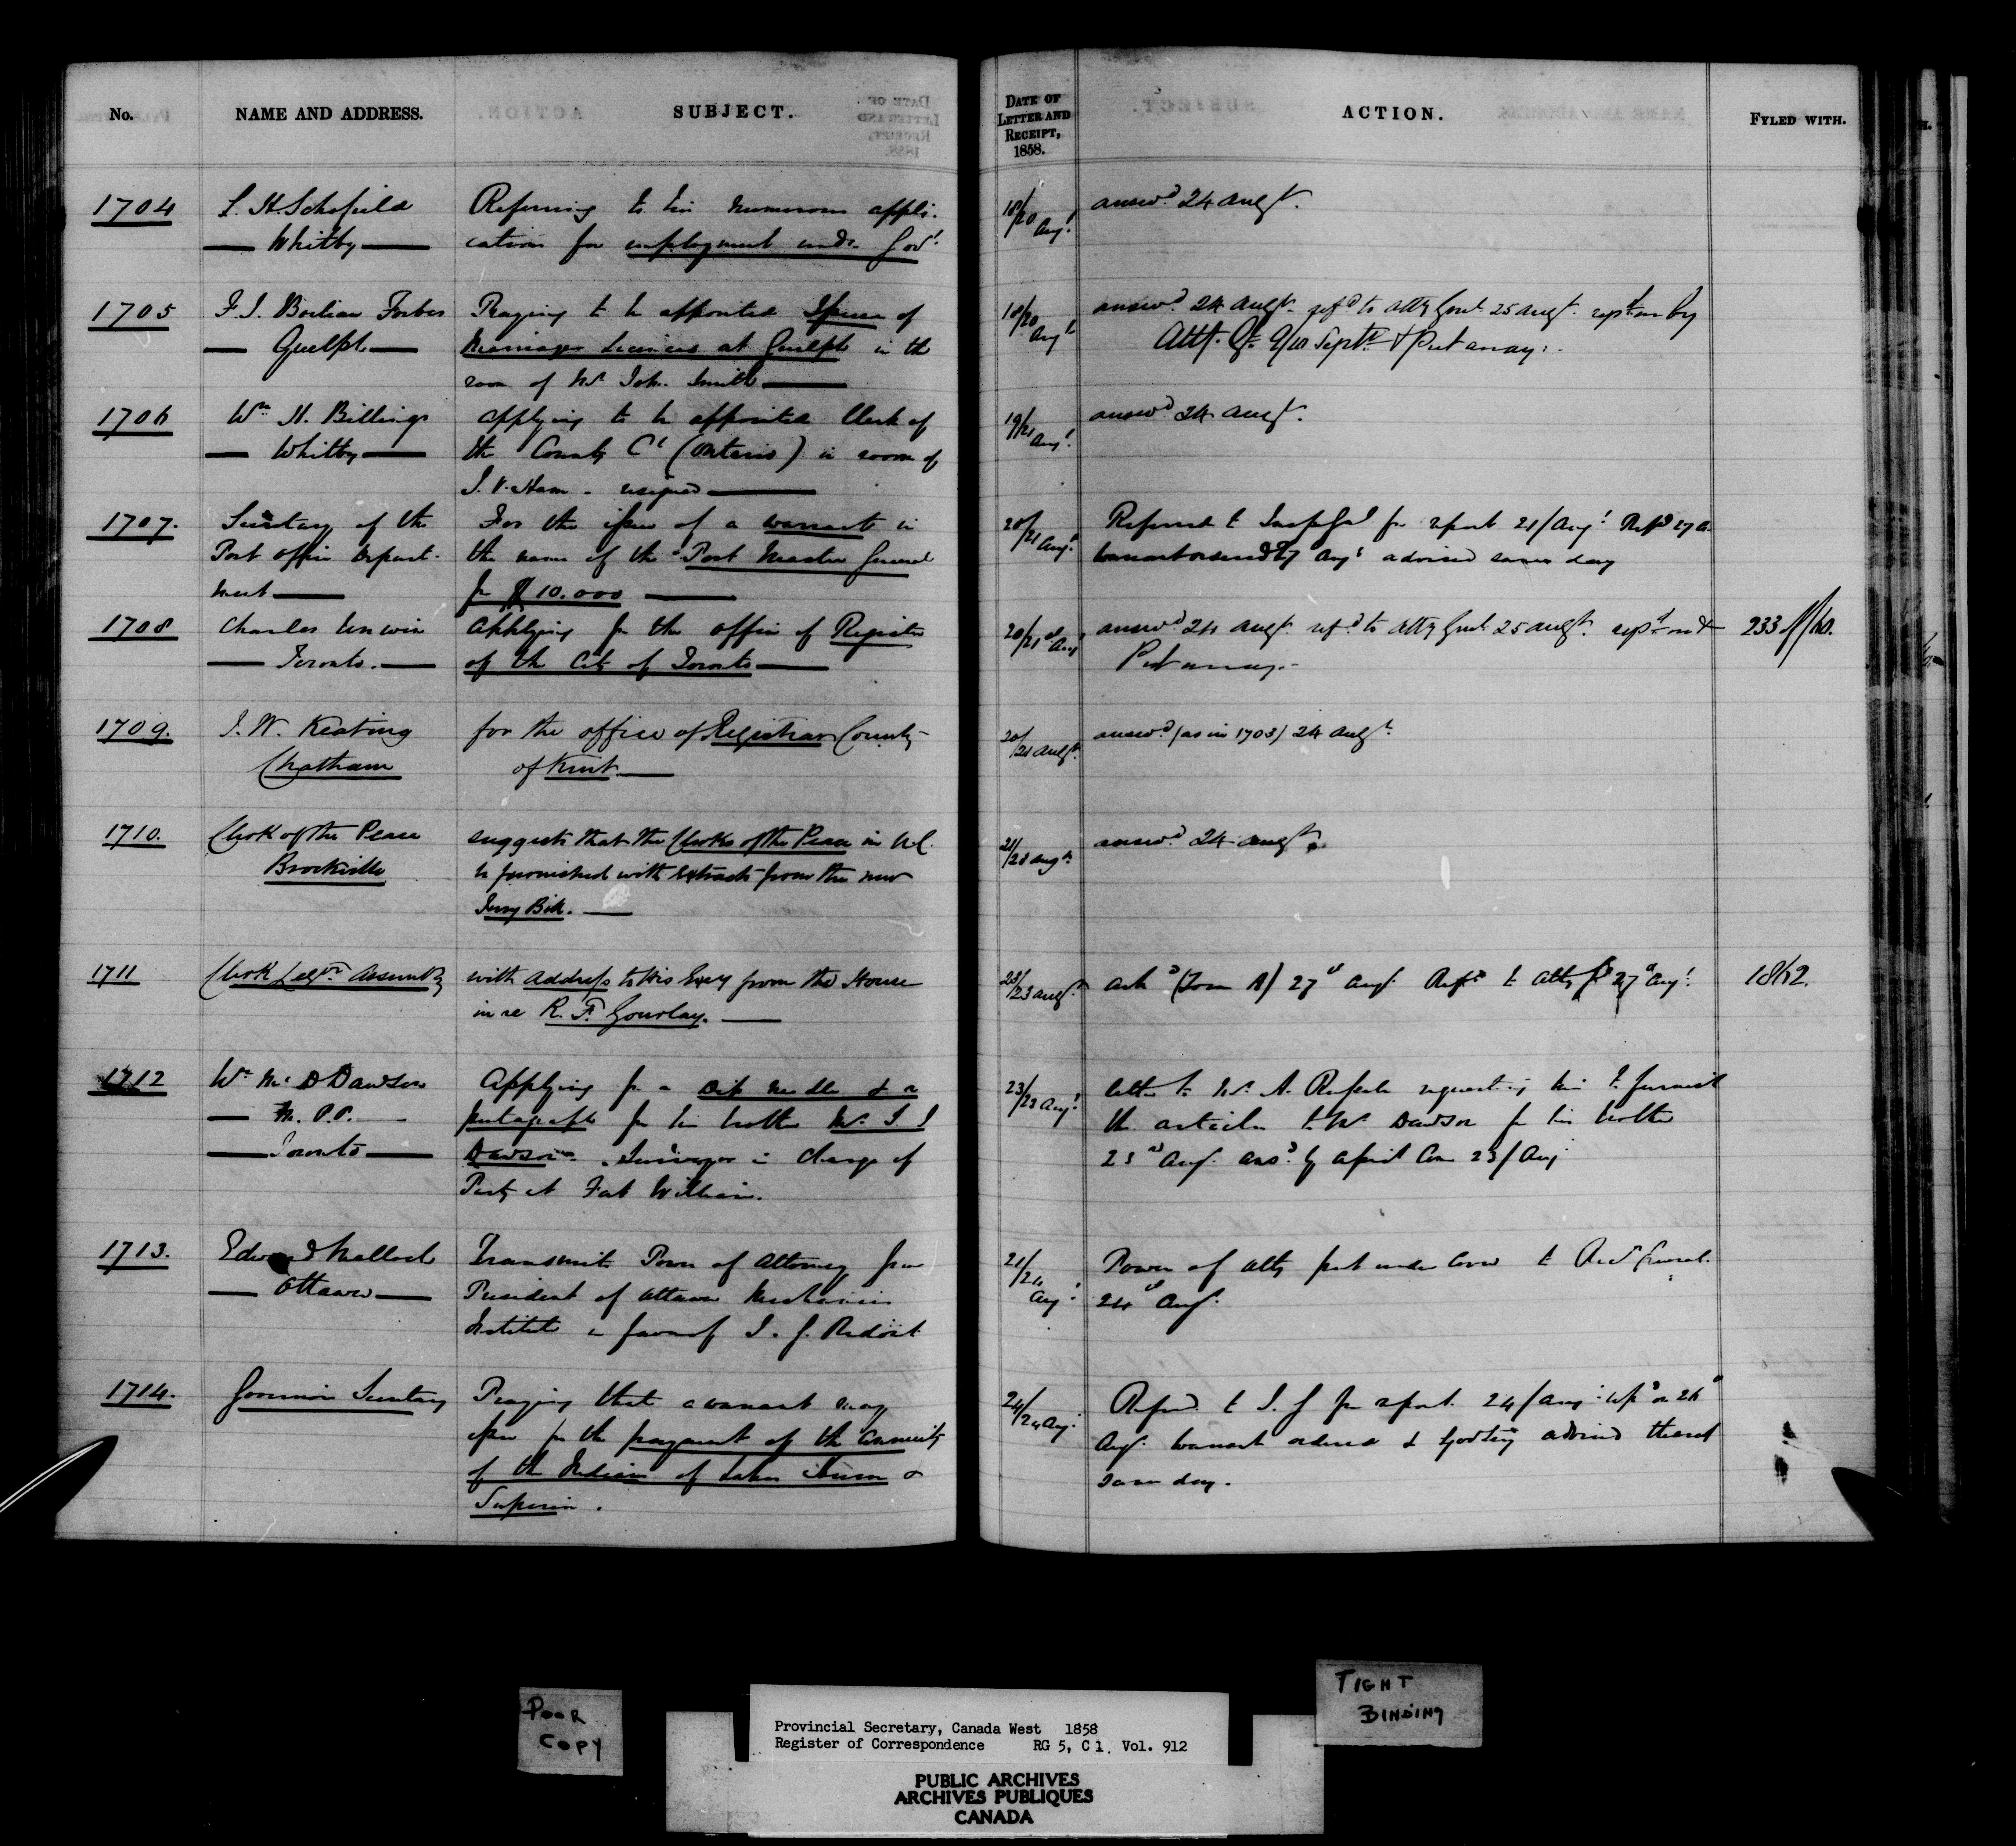 No.
NAME AND ADDRESS.
SUBJECT.
DATE OF
LETTER AND
RECEIPT,
1858.
ACTION.
FYLED WITH.
1704
L. H. Schofield
Whitby
Referring to his numerous appli-
cations for employment under Govt.
18/20 Augt.
answd. 24 Augt.
1705
Forbes
Guelph
Praying to be appointed Issuer of
Marriage Licences at Guelph in the
room of Mr. Joh. Smith
18/20 Augt.
answd. 24 Augt. refd. to Atty Genl. 25 Augt. rept. on by
Atty. Gl. 9/10 Septr. & Put away.
1706
Wm. H. Billings
Whitby
Applying to be appointed Clerk of
the County Ct. (Ontario) in room of
J. V. Ham - resigned
19/21 Augt.
answd. 24 Augt.
1707.
Secretary of the
Post Office Depart-
ment
For the issue of a warrant in
the name of the Post Master General
for $10.000
20/21 Augt.
Referred to Insp Genl for report 21/Augt. Repd 27 A.
Warrant ordered 27 Augt advised same day
1708
Charles Unwin
Toronto.
Applying for the office of Register
of the City of Toronto
20/21st Augt
answd. 24 Augt. refd. to Atty Genl. 25 Augt. rept. on &
Put away.
233 /60.
1709.
J. W. Keating
Chatham
for the office of Registrar County
of Kent.
20/21 Augt.
answd. (as in 1703) 24 Augt.
1710.
Clerk of the Peace
Brockville
suggests that the Clerks of the Peace in U.C.
be furnished with extracts from the new
Jury Bill.
21/23 Augt.
answd. 24 Augt.
1711
Clerk Legve. Assembly
with Address to His Excy from the House
in re R. F. Gourlay.
23/23 Augt.
ackd (Form A) 27th Augt. Refd. to Atty Gl 27th Augt.
1812.
1712
Wm. McD Dawson
M. P. P.
Toronto
Applying for a Dip needle & a
pentagraph for his brother Mr. S. J.
Dawson. Surveyor in charge of
Party at Fort William.
23/23 Augt.
Letter to Mr. A. Russell requesting him to furnish
the articles to Mr Dawson for his brother
23rd Augt. ansd. by 23/Aug
1713.
Edward Malloch
Ottawa
Transmits Power of Attorney from
President of Ottawa Mechanics
Institute in favor of
21/24 Augt.
Power of Atty sent under Cover to Recr General.
24th Augt.
1714.
Governors Secretary
Praying that a warrant may
issue for the payment of the annuity
of the Indians of Lakes Huron &
Superior.
24/24 Aug:
Referd. to I. G for report. 24/Aug: repd on 26th
Augt. Warrant ordered & Gov Secy advised thereof
same day.
POOR
COPY
TIGHT
BINDING
Provincial Secretary, Canada West 1858
Register of Correspondence RG 5, C 1, Vol. 912
PUBLIC ARCHIVES
ARCHIVES PUBLIQUES
CANADA